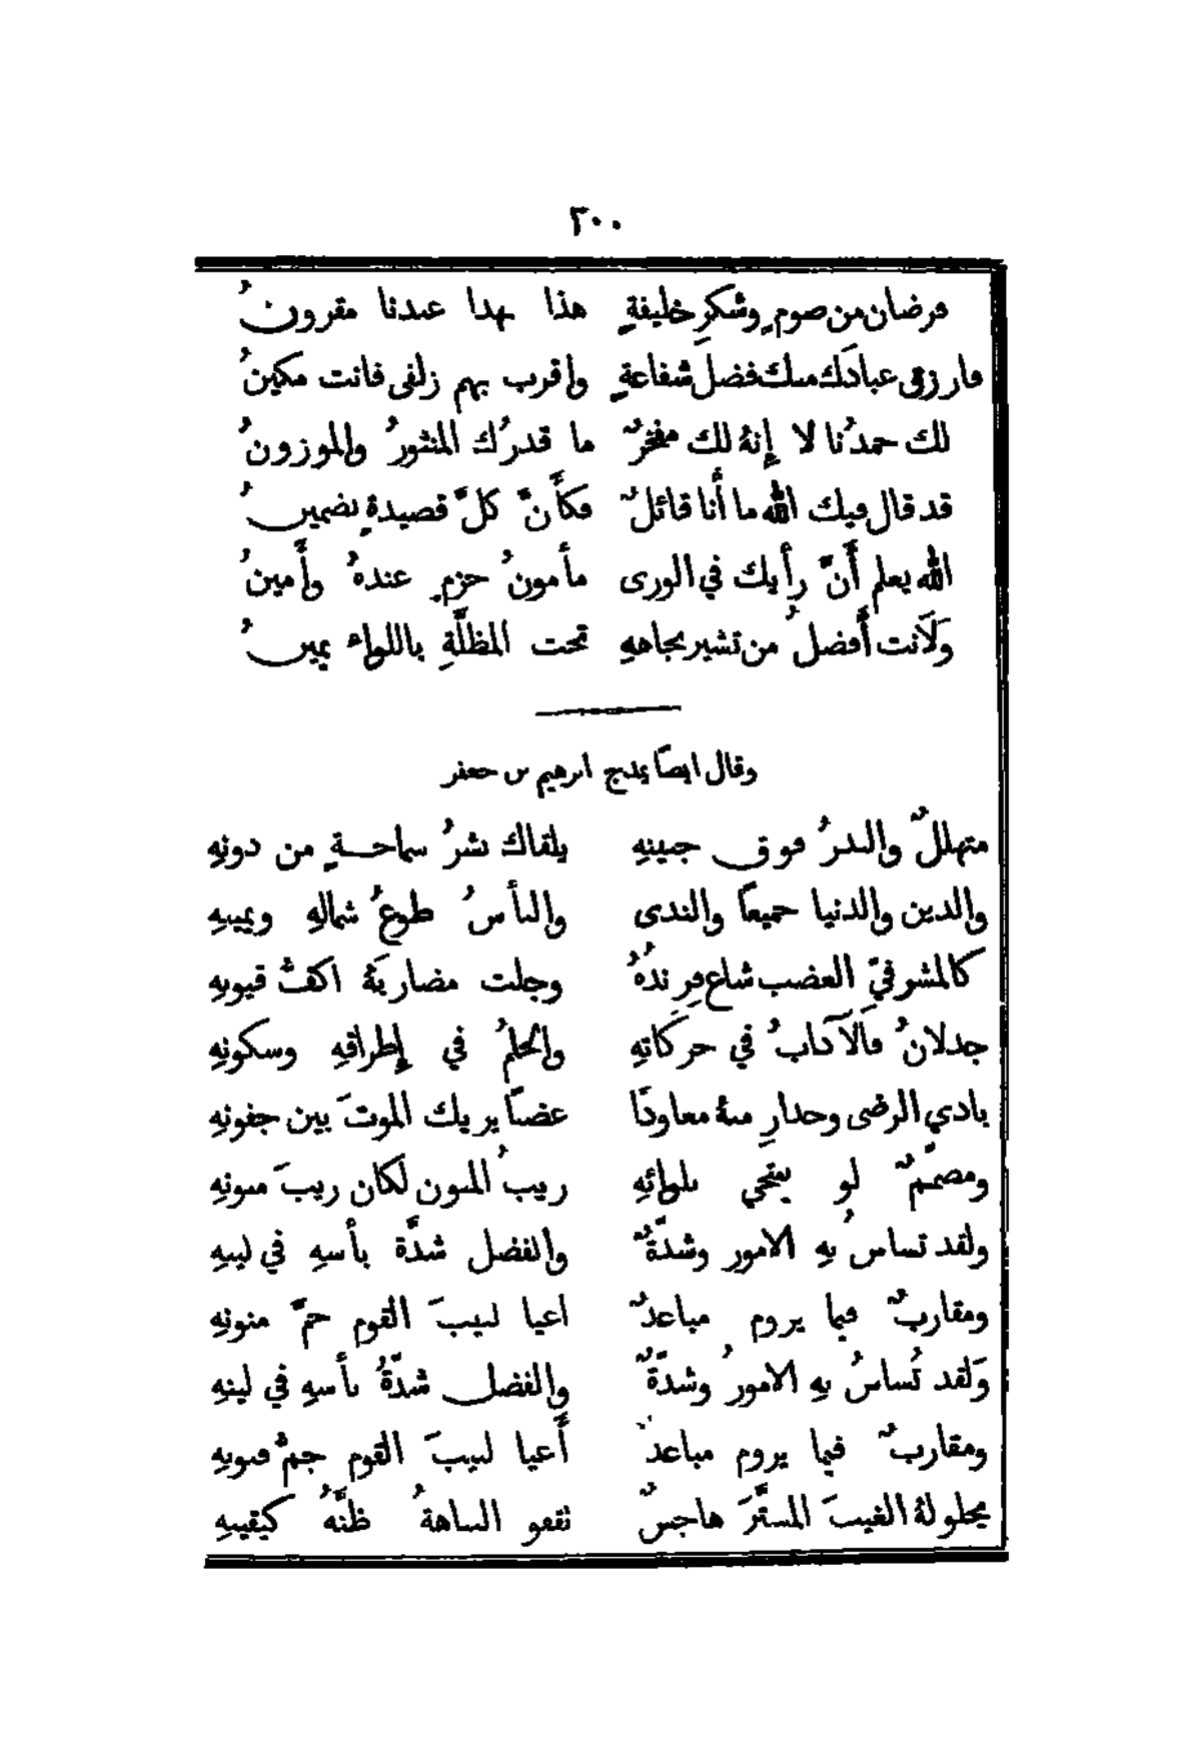 ٢٠٠
فرضان من صومٍ وشكرِ خليفةٍ هذا بهذا عندنا مقرونُ
فارزق عبادَك منك فضلَ شفاعةٍ واقرب بهم زلفى فانت مكينُ
لك حمدُنا لا إِنهُ لك مفخرٌ ما قدرُك المنثورُ والموزونُ
قد قال فيك الله ما أنا قائلٌ فكأَنَّ كلَّ قصيدةٍ تضمينُ
الله يعلم أَنَّ رأيك في الورى مأمونُ حزمٍ عندهُ وأَمينُ
وَلَأنت أَفضلُ من تشير بجاههِ تحت المظلَّةِ باللواء يمينُ
وقال ايضًا يمدح ابرهيم بن جعفر
متهللٌ والبدرُ فوق جبينهِ يلقاك بشرُ سماحةٍ من دونهِ
والدين والدنيا جميعًا والندى والبأسُ طوعُ شمالهِ ويمينهِ
كالمشرفيّ العضب شاع فرِندُهُ وجلت مضاربَهُ اكفُّ قيونهِ
جذلانُ فالآدابُ في حركاتهِ والحلمُ في إِطراقهِ وسكونهِ
بادي الرضى وحذارِ منهُ معاودًا غضبًا يريك الموتَ بين جفونهِ
ومصمّمٌ لو ينتحي بلوائهِ ريبُ المنون لكان ريبَ منونهِ
ولقد تساسُ بهِ الامور وشدّةٌ والفضل شدَّة بأسهِ في لينهِ
ومقاربٌ فيما يروم مباعدٌ اعيا لبيبَ القوم حمَّ منونهِ
وَلقد تُساسُ بهِ الامورُ وشدّةٌ والفضل شدّةُ بأسهِ في لينهِ
ومقاربٌ فيما يروم مباعدٌ أَعيا لبيبَ القوم جمُّ فنونهِ
يجلو لهُ الغيبَ المستَّرَ هاجسٌ تقفو النباهةُ ظنَّهُ كيقينهِ